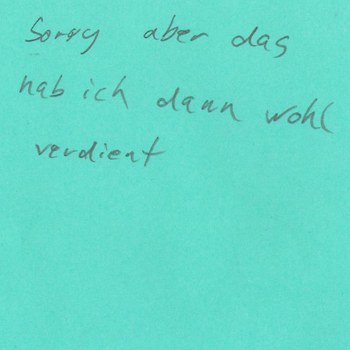 Sorry aber das
hab ich dann wohl
verdient